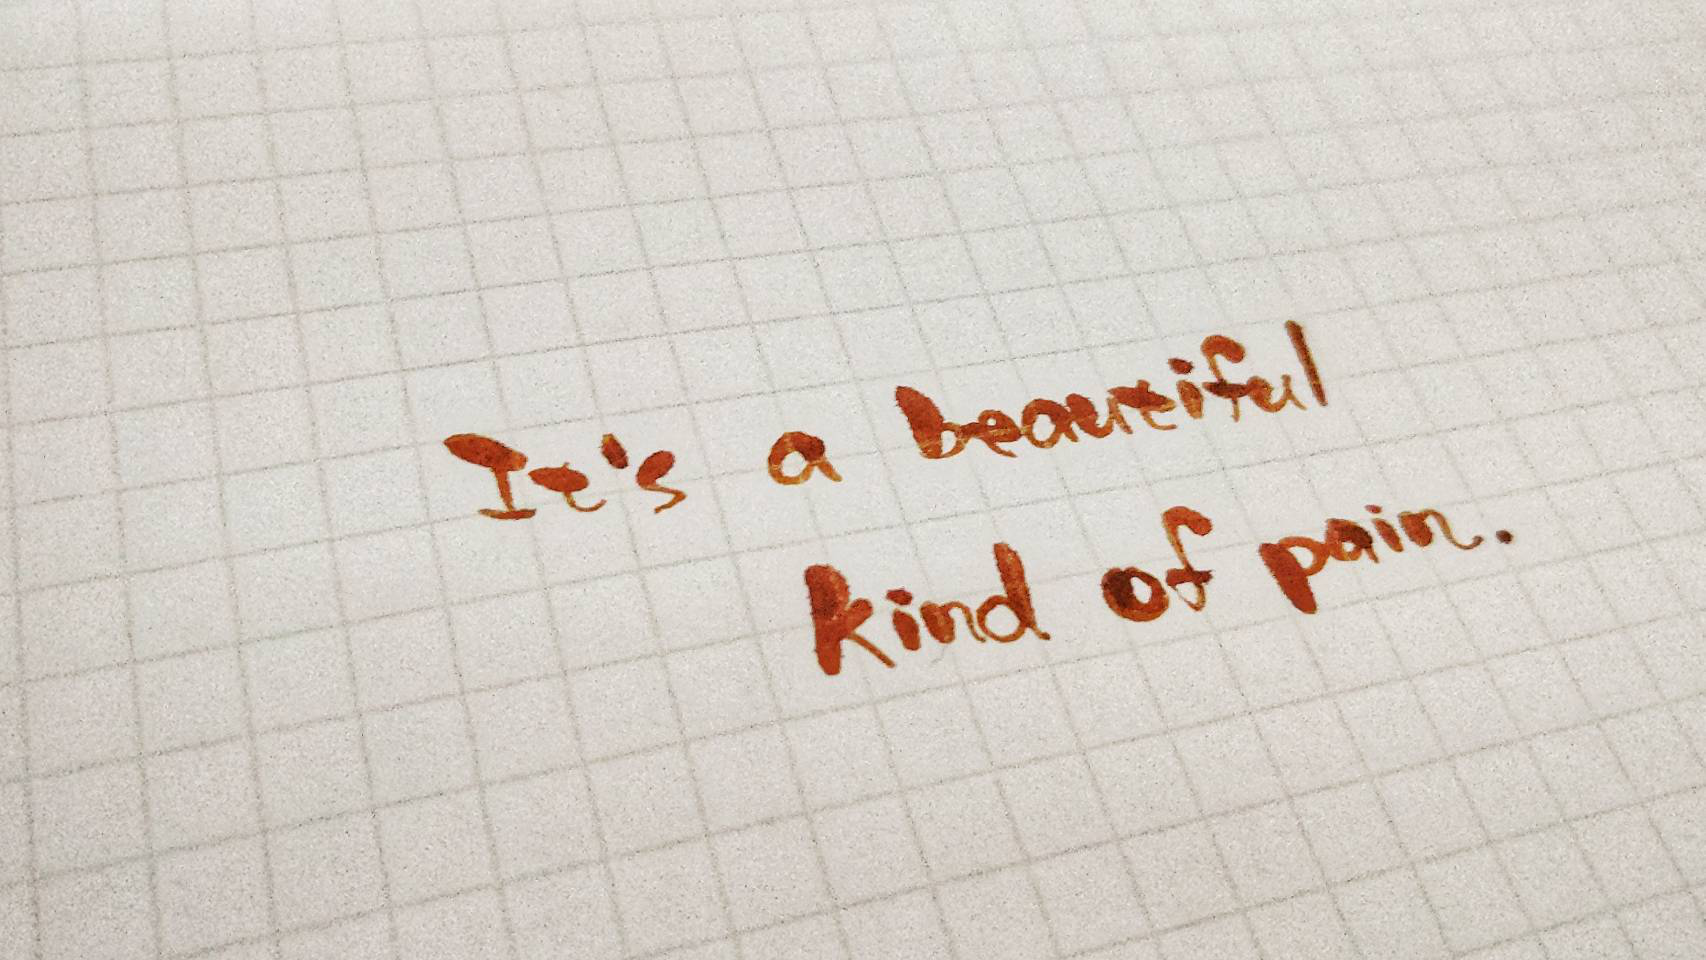 It's a beautiful
kind of pain.